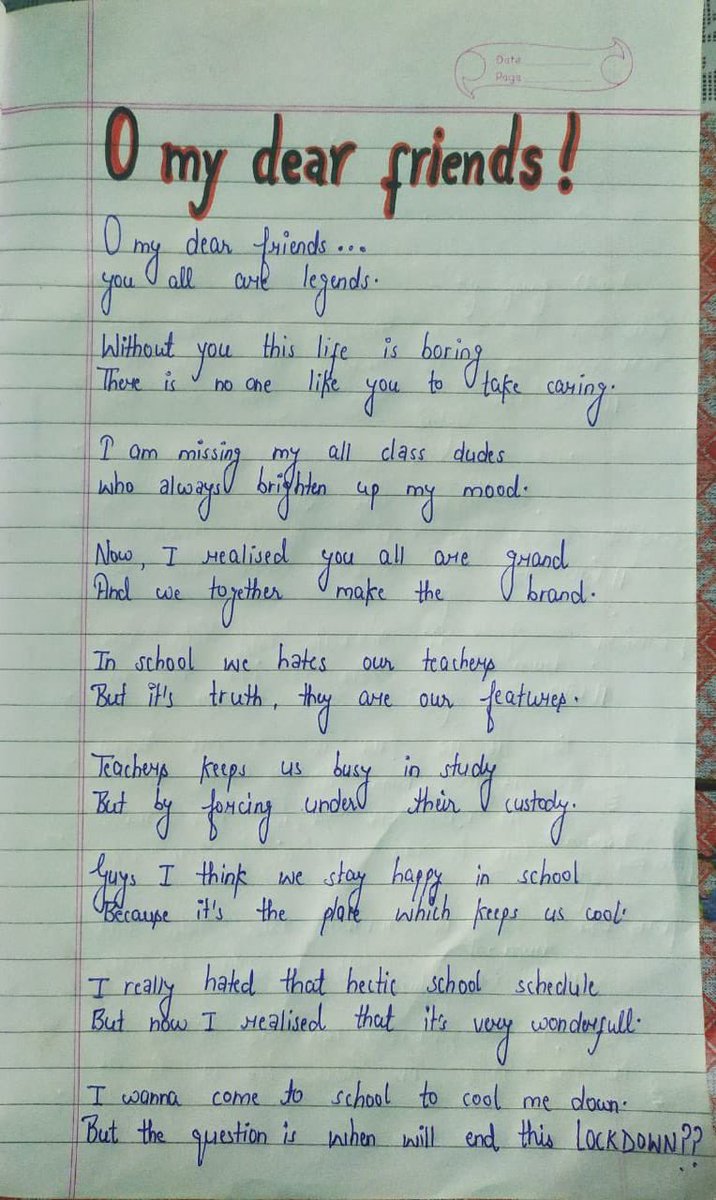 Date
Page
O my dear friends!
O my dear friends...
you all are legends.
Without you this life is boring
There is no one like you to take caring.
I am missing my all class dudes
who always brighten up my mood.
Now, I realised you all are grand
And we together make the brand.
In school we hates our teachers
But it's truth, they are our features.
Teachers keeps us busy in study
But by forcing under their custody.
Guys I think we stay happy in school
Because it's the place which keeps us cool.
I really hated that hectic school schedule
But now I realised that it's very wonderfull.
I wanna come to school to cool me down.
But the question is when will end this LOCKDOWN??